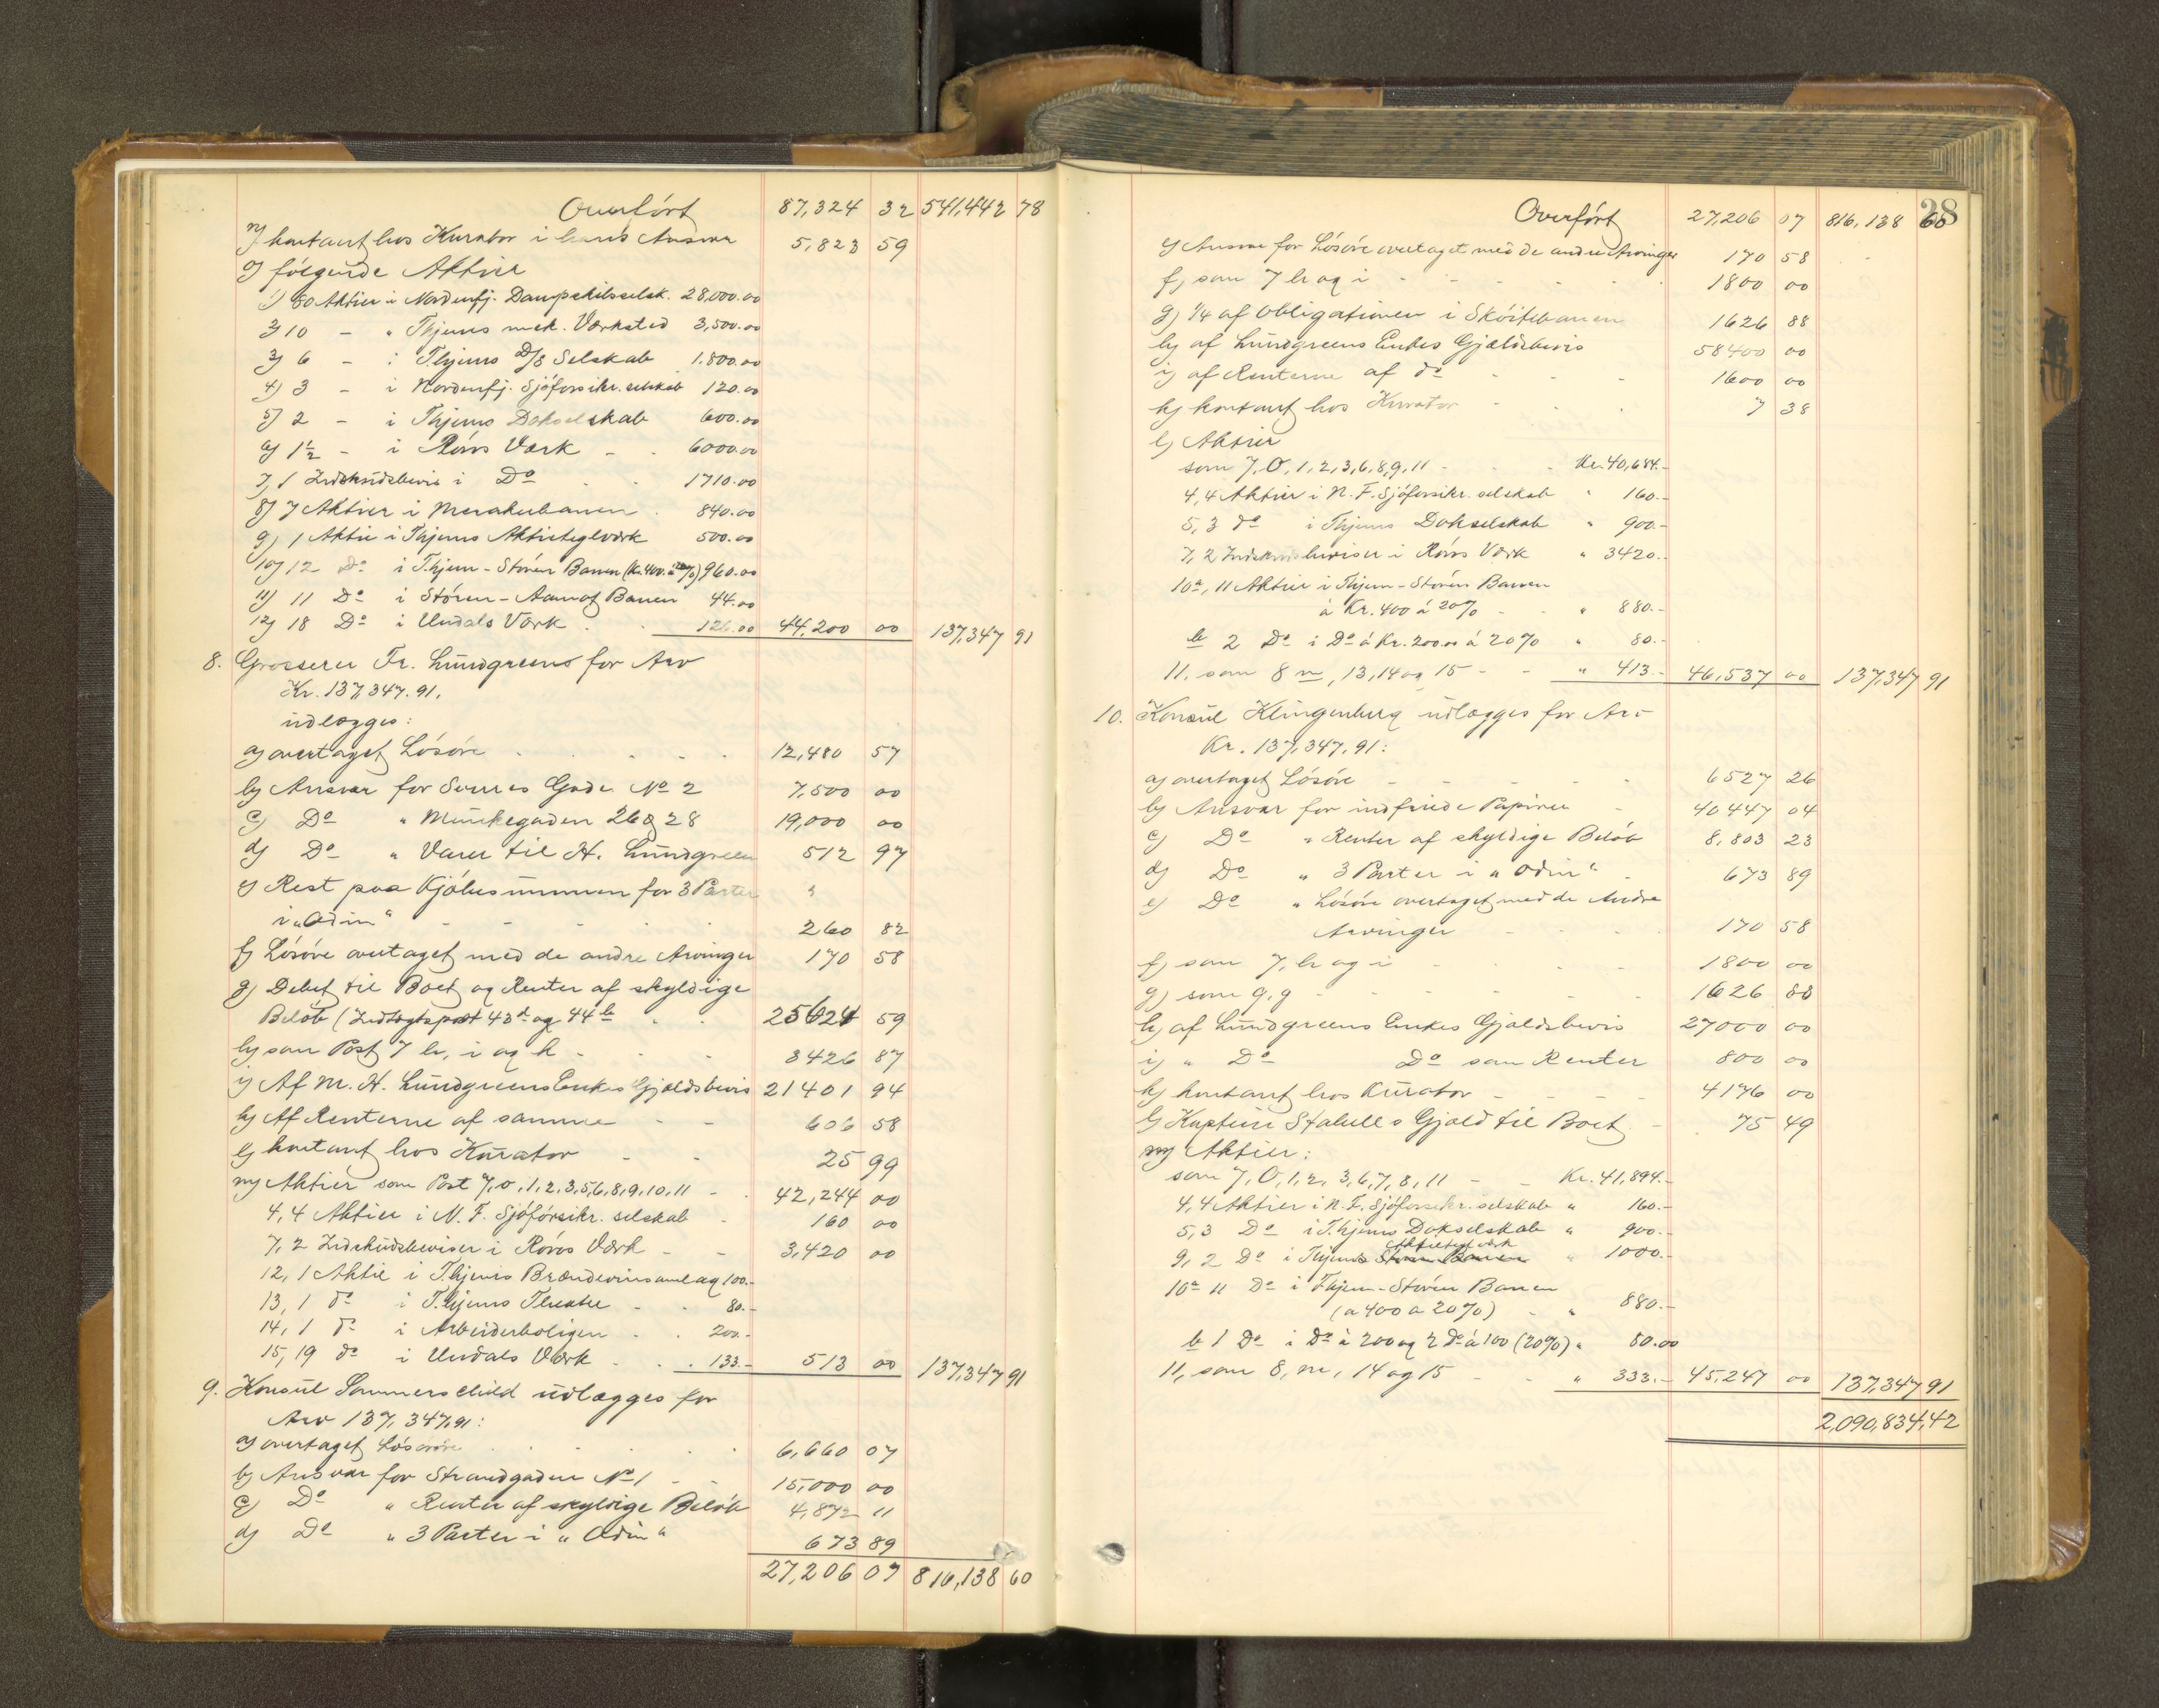 Overført 87,324 32 541,442 78
n) kontant hos Kurator i hans Ansvar 5,823 59
o) følgende Aktier
1) 80 Aktier i Nordenfj. Dampskibsselsk. 28,000.00
2) 10 — " Thjems mek. Værksted 3,500.00
3) 6 — : Thjems D/S Selskab 1,800.00
4) 3 — i Nordenfj. Sjøforsikr. selskab 120.00
5) 2 — i Thjems Dokselskab 600.00
6) 1½ — i Røros Værk - - 6000.00
7) 1 Indskudsbevis i Do . . 1710.00
8) 7 Aktier i Merakerbanen . 840.00
9) 1 Aktie i Thjems Aktieteglværk 500.00
10) 12 Do i Thjem - Støren Banen (Kr. 400. à 20%) 960.00
11) 11 Do i Støren - Aamot Banen 44.00
12) 18 Do i Undals Værk . . 126.00 44,200 00 137,347 91
8. Grosserer Fr. Lundgreens for Arv
Kr. 137,347.91.
udlægges:
a) overtaget Løsøre . . . . 12,480 57
b) Ansvar for Sverres Gade No 2 7,500 00
c) Do " Munkegaden 26 & 28 19,000 00
d) Do " Varer til H. Lundgreen 512 97
e) Rest paa Kjøbesummen for 3 Parter "
i "Odin" - - - - - 260 82
f) Løsøre overtaget med de andre Arvinger 170 58
g) Debet til Boet og Renter af skyldige
Beløb (Indtægtspost 43d og 44b . . 25624 59
h) som Post 7 h, i og k - - - 3426 87
i) Af M. H. Lundgreens Enkes Gjældsbevis 21401 94
k) Af Renterne af samme - - 606 58
l) kontant hos Kurator - - 25 99
m) Aktier som Post 7, o, 1, 2, 3, 5, 6, 8, 9, 10, 11 - . 42,244 00
4, 4 Aktier i N. F. Sjøforsikr. selskab . 160 00
7, 2 Indskudsbeviser i Røros Værk - - 3,420 00
12, 1 Aktie i Thjems Brændevinsamlag 100.-
13, 1 do i Thjems Theater - . 80.-
14, 1 do i Arbeiderboligen . . 200.-
15, 19 do i Undals Værk . . . 133.- 513 00 137,347 91
9. Konsul Sommerschild udlægges for
Arv 137,347,91:
a) overtaget Løsøre . . . . . 6,660 07
b) Ansvar for Strandgaden No 1 - - 15,000 00
c) Do " Renter af skyldige Beløb 4,872 11
d) Do " 3 Parter i " Odin " 673 89
27,206 07 816,138 60
28
Overført 27,206 07 816,138 60
e) Ansvar for Løsøre overtaget med de andre Arvinger 170 58
f) som 7 h og i - - - - - . 1800 00
g) ¼ af Obligationen i Skøitebanen 1626 88
h) af Lundgreens Enkes Gjældsbevis 58400 00
i) af Renterne af do - - - 1600 00
k) kontant hos Kurator - . . 7 38
l) Aktier
som 7, O, 1, 2, 3, 6, 8, 9, 11 - - - Kr. 40,684.-
4, 4 Aktier i N. F. Sjøforsikr. selskab " 160.-
5, 3 do i Thjems Dokselskab " 900.-
7, 2 Indskudsbeviser i Røros Værk " 3420.-
10a, 11 Aktier i Thjem - Støren Banen
à Kr. 400 à 20% - - " 880.-
b 2 Do i Do à Kr. 200.00 à 20% " 80.-
11, som 8 m, 13, 14 og 15 - - " 413.- 46,537 00 137,347 91
10. Konsul Klingenberg udlægges for Arv
Kr. 137,347,91:
a) overtaget Løsøre - - - - - 6527 26
b) Ansvar for indfriede Papirer - 40447 04
c) Do " Renter af skyldige Beløb 8,803 23
d) Do " 3 Parter i " Odin " . 673 89
e) Do " Løsøre overtaget med de Andre
Arvinger - - - . 170 58
f) som 7, h og i - - - - - 1800 00
g) som 9, g - - - - - - 1626 88
h) af Lundgreens Enkes Gjældsbevis 27000 00
i) " Do Do som Renter 800 00
k) kontant hos Kurator - - - - 4176 00
l) Kaptein Gjæld til Boet - 75 49
m) Aktier:
som 7, O, 1, 2, 3, 6, 7, 8, 11 - - Kr. 41,894.-
4, 4 Aktier i N. F. Sjøforsikr. selskab " 160.-
5, 3 Do i Thjems Dokselskab " 900.-
Aktieteglværk
9, 2 Do i Thjems Støren Banen " 1000.-
10a 11 Do i Thjem - Støren Banen
(a 400 a 20%) - " 880.-
b 1 Do i Do à 200 og 2 Do à 100 (20%) " 80.00
11, som 8, m, 14 og 15 - - " 333.- 45,247 00 137,347 91
2,090,834,42